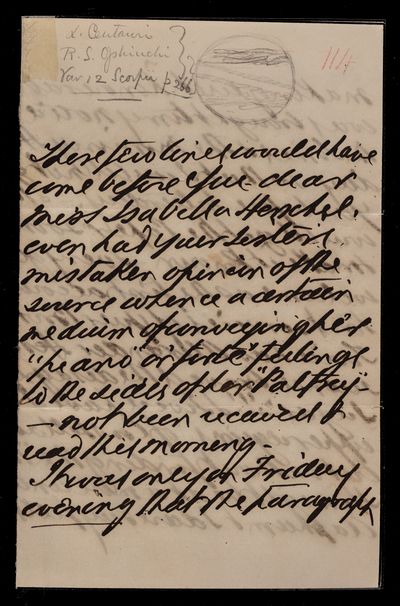 X. Centauri
R. S. Ophiuchi
Var 12 Scorpii
p 266
114
These few lines would have
come before you dear
Miss Isabella Herschel,
even had your sister's
mistaken opinion of the
source whence a certain
medium of conveying her
"piano" or "forte" feelings
to the sides of her "Palfrey"
– not been received &
read this morning –
It was only on Friday
evening that the paragraph